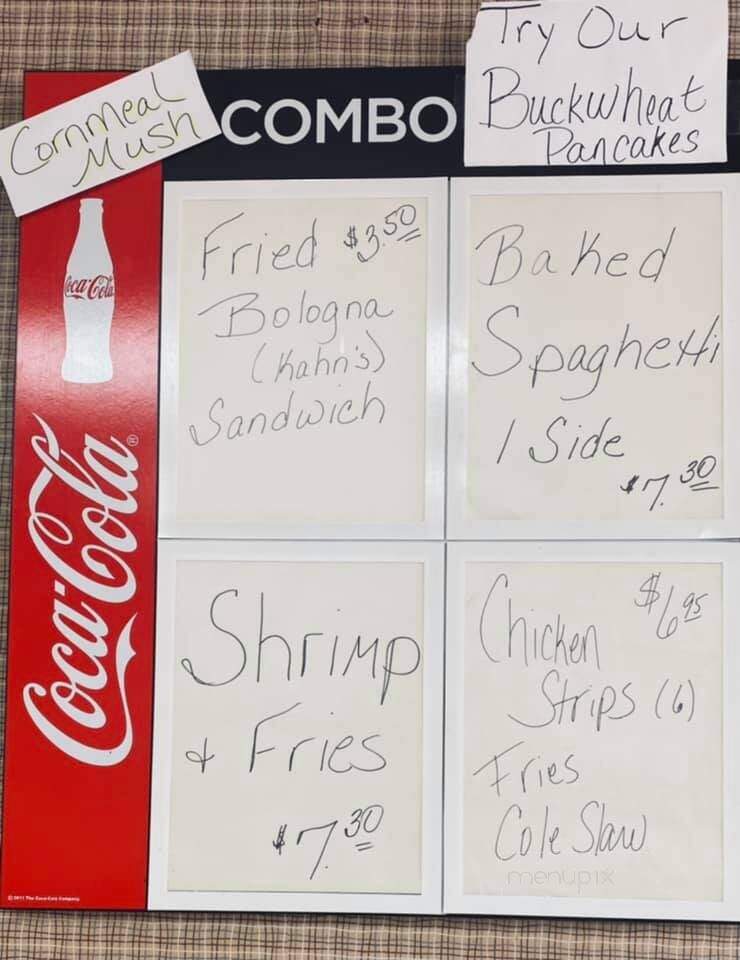 Try Our
Buckwheat
Pancakes
Cornmeal
Mush
COMBO
Coca-Cola
Coca-Cola®
Fried $3.50
Bologna
(Kahn's)
Sandwich
Baked
Spaghetti
1 Side
$7.30
Shrimp
+ Fries
$7.30
$6.95
Chicken
Strips (6)
Fries
Cole Slaw
menupix
© 2011 The Coca-Cola Company